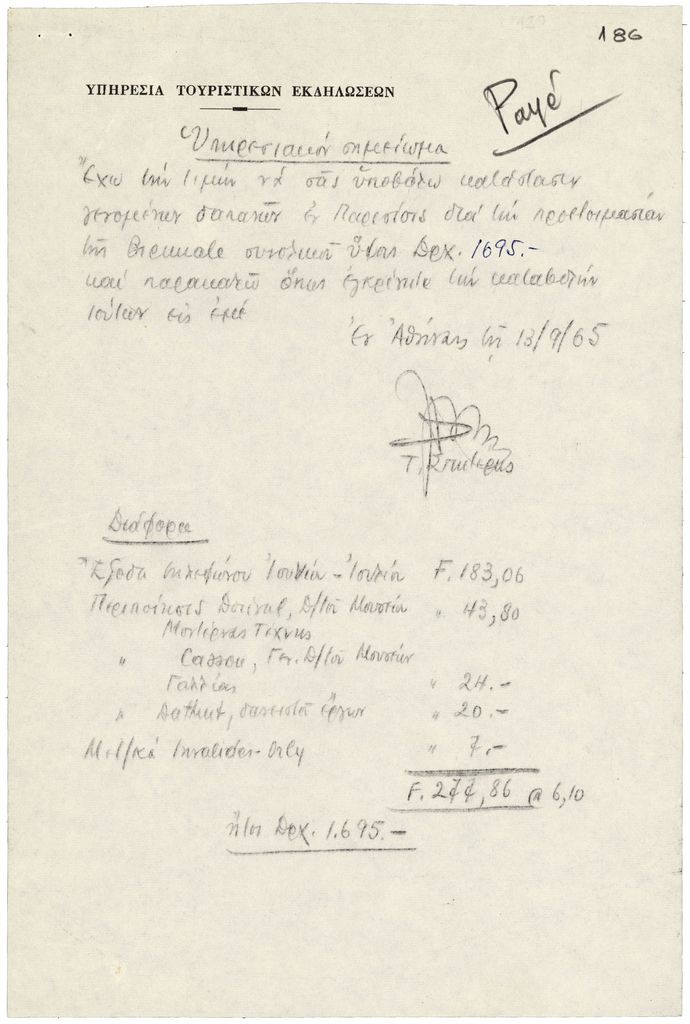 186
ΥΠΗΡΕΣΙΑ ΤΟΥΡΙΣΤΙΚΩΝ ΕΚΔΗΛΩΣΕΩΝ
Payé
Ὑπηρεσιακόν σημείωμα
Ἔχω τήν τιμήν νά σᾶς ὑποβάλω κατάστασιν
γενομένων δαπανῶν ἐν Παρισίοις διά τήν προετοιμασίαν
τῆς Biennale συνολικοῦ ὕψους Δρχ. 1695.-
καί παρακαλῶ ὅπως ἐγκρίνητε τήν καταβολήν
τούτων εἰς ἐμέ
Ἐν Ἀθήναις τῇ 13/9/65
Τ. Σπητέρης
Διάφορα
Ἔξοδα τηλεφώνου Ἰουνίου - Ἰουλίου F. 183,06
Περιποίησις Dorival, Δ/τοῦ Μουσείου " 43,80
Μοντέρνας Τέχνης
" Cassou, Γεν. Δ/τοῦ Μουσείων
Γαλλίας " 24.-
" δανειστοῦ ἔργων " 20.-
Μετ/κά Invalides-Orly " 7.-
F. 277,86 @ 6,10
ἤτοι Δρχ. 1.695.-